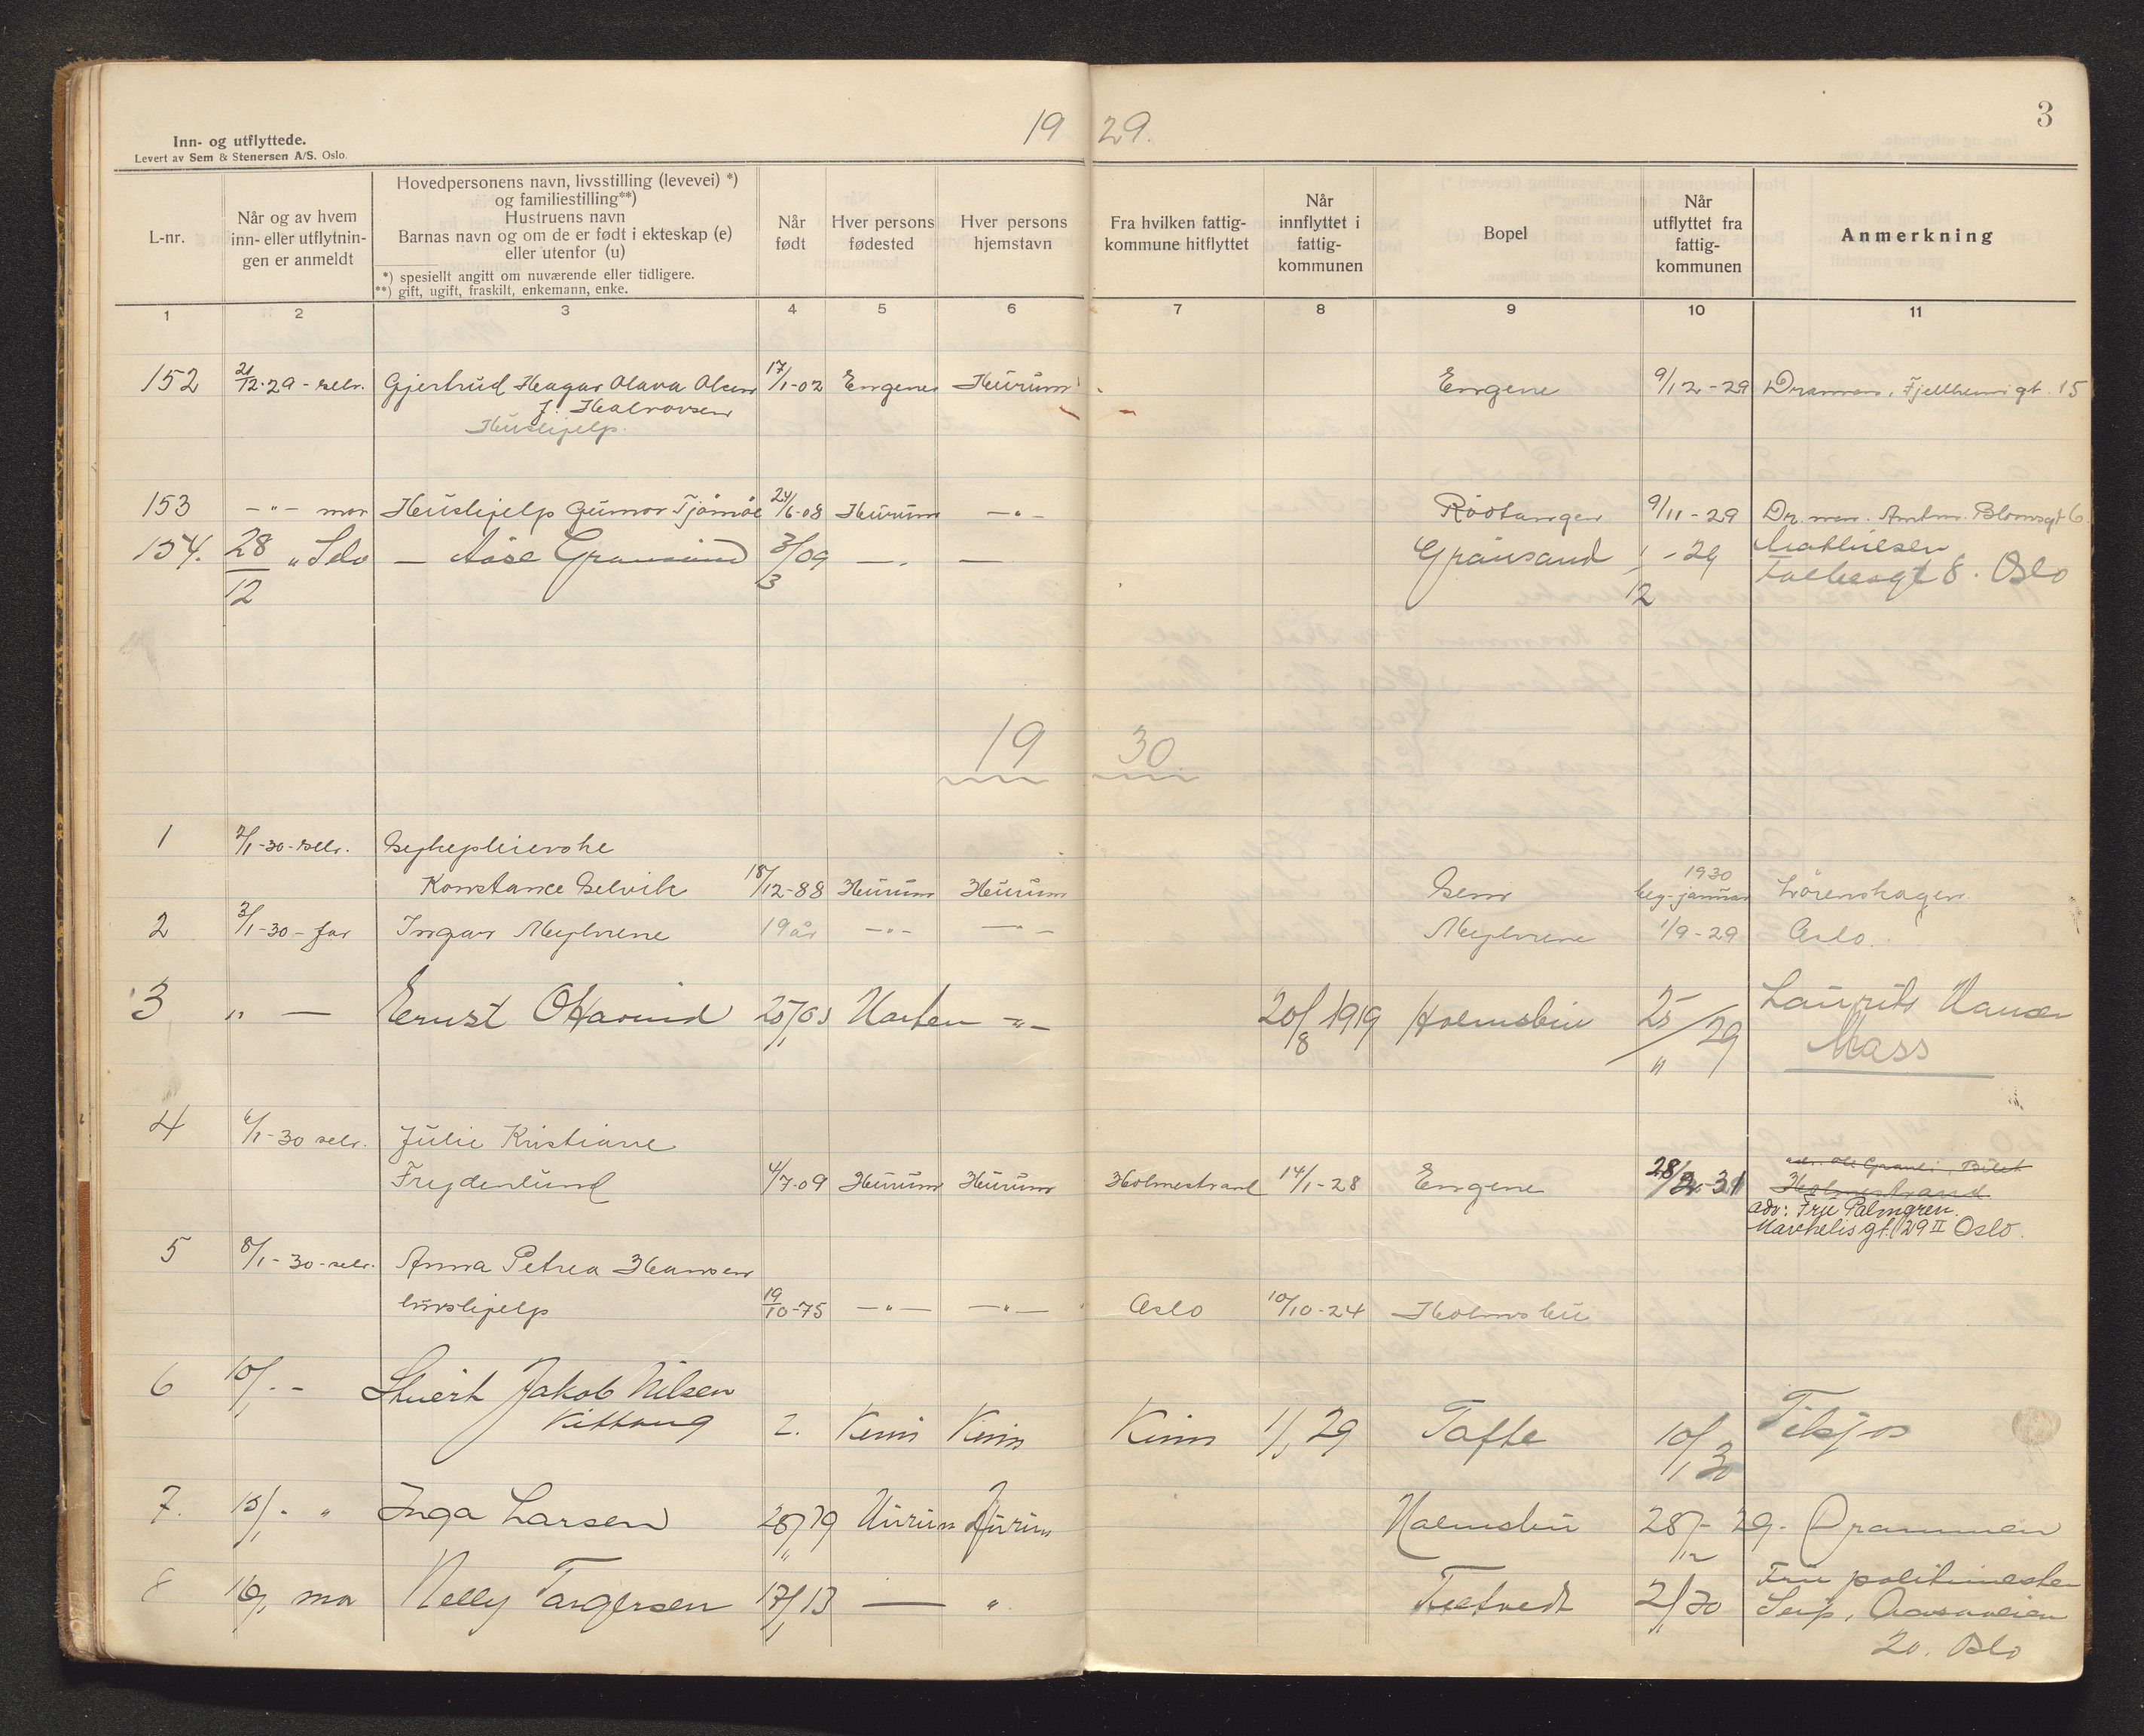 19 29.
3
Inn- og utflyttede.
Levert av Sem & Stenersen A/S. Oslo.
L-nr.
Når og av hvem inn- eller utflytnin- gen er anmeldt
Hovedpersonens navn, livsstilling (levevei) *)
og familiestilling**)
Hustruens navn
Barnas navn og om de er født i ekteskap (e)
eller utenfor (u)
*) spesiellt angitt om nuværende eller tidligere.
**) gift, ugift, fraskilt, enkemann, enke.
Når født
Hver persons fødested
Hver persons hjemstavn
Fra hvilken fattig- kommune hitflyttet
Når innflyttet i fattig- kommunen
Bopel
Når utflyttet fra fattig- kommunen
Anmerkning
1 2 3 4 5 6 7 8 9 10 11
152 21/12-29 - selv. Gjertrud Hagar Olava Olsen 17/1-02 Engene Hurum Engene 9/12-29 Drammen, Fjellheimgt. 15
f. Halvorsen
Hushjelp.
153 -"- mor Hushjelp Gunvor Tjømøe 24/6-08 Hurum -"- Rødtangen 9/11-29 Dr.men. Amtm. Blomsgt 6.
154. 28/12 " Selv — Aase Gransund 3/3 09 — — Grånsand 1/12-29 Mathiesen
8. Oslo
19 30
1 2/1-30-selv. Sykepleierske
Konstance Selvik 18/12-88 Hurum Hurum beg. januar 1930 Lörenskogen
2 3/1-30-far Ingar Myhrene 19 år -"- -"- Myhrene 1/9-29 Oslo.
3 " — Ernst Oktavind 25/1 03 -"- 20/8 1919 Holmsbu 25/11 29 Laurits Hansen
Mass
4 6/1-30 selv. Julie Kristiane
Frydenlund 4/7-09 Hurum Hurum Holmestrand 14/1-28 Engene 28/2-31 Holmestrand
adr: Fru Palmgren.
Markelis gt. 29 II Oslo.
5 8/1-30-selv. Anna Petrea Hansen
hushjelp 19/10-75 -"- -"- Oslo 10/10-24 Holmsbu
6 10/1 - - Jakob Nilsen
2. Kinn Kinn Kinn 1/1 29 Tofte 10/1 30
7. 15/1 - " Inga Larsen 28/11 79 Hurum Hurum Holmsbu 28/12-29. Drammen
8 16/1 mor Nelly Torgersen 17/1 13 — " Tretvedt 2/1 30 Fru politimester
Seip,
20. Oslo